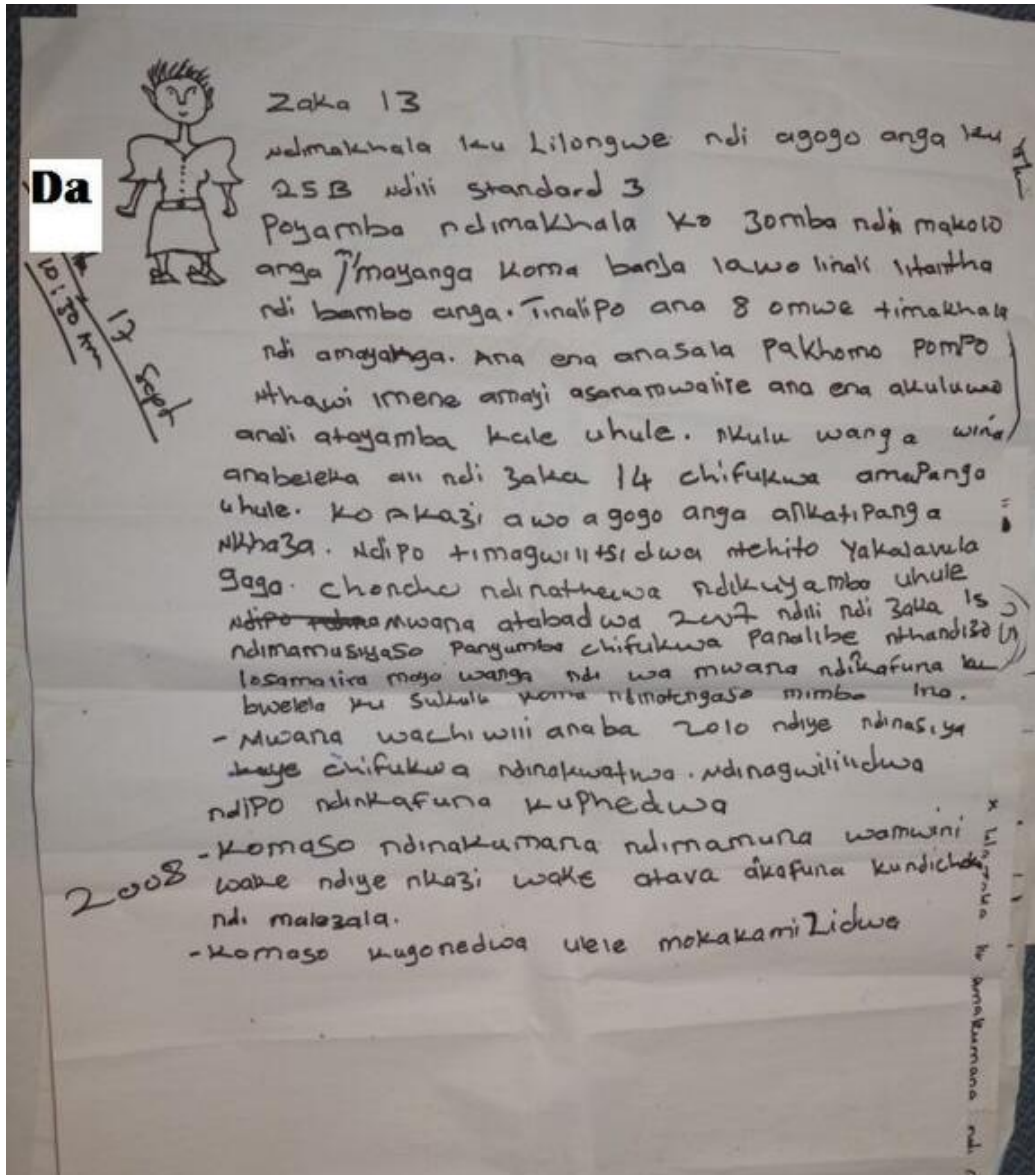 Zaka 13
Ndimakhala ku Lilongwe ndi agogo anga ku
25B Ndili standard 3
Poyamba ndimakhala ko Zomba ndi makolo
anga mayanga koma banja lawo linali litantha
ndi bambo anga. Tinalipo ana 8 omwe timakhala
ndi amayanga. Ana ena anasala pakhomo pompo
Nthawi imene amayi asanamwalire ana ena akuluwo
anali atayamba kale uhule. Nkulu wanga wina
anabeleka ali ndi zaka 14 chifukwa amapanga
uhule. Ko akazi awo agogo anga ankatipanga
Nkhaza. Ndipo timagwilitsidwa ntchito yakalavula
gaga. Choncho ndinathawa ndikuyamba uhule
Mwana atabadwa 2007 ndili ndi zaka 15
ndimamusiyaso panyumba chifukwa panalibe nthandizo
losamalira moyo wanga ndi wa mwana ndikafuna ku
bwelela ku sukulu koma ndinatengaso mimba ina.
- Mwana wachiwili anaba 2010 ndiye ndinasiya
chifukwa ndinakwatiwa. Ndinagwililidwa
ndipo ndinkafuna kuphedwa
2008 - Komaso ndinakumana ndimamuna wamwini
wake ndiye nkazi wake atava akafuna kundicheka
ndi malezala.
- Komaso kugonedwa ulele mokakamizidwa
Da
17 Sept
10:30 Am
amakumana ndi